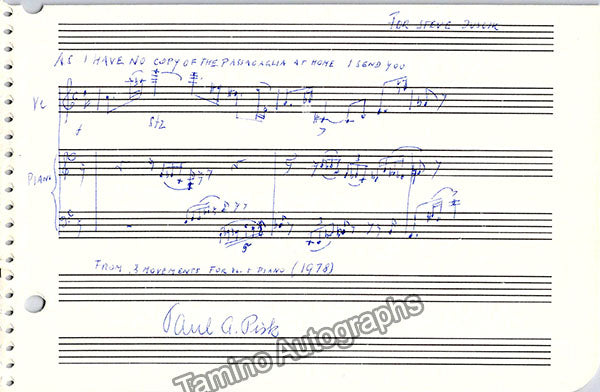 FOR STEVE
AS I HAVE NO COPY OF THE PASSACAGLIA AT HOME I SEND YOU
Vc
f
sfz
PIANO
3
5
3
FROM 3 MOVEMENTS FOR Vc. & PIANO (1978)
Paul A. Pisk
Tamino Autographs